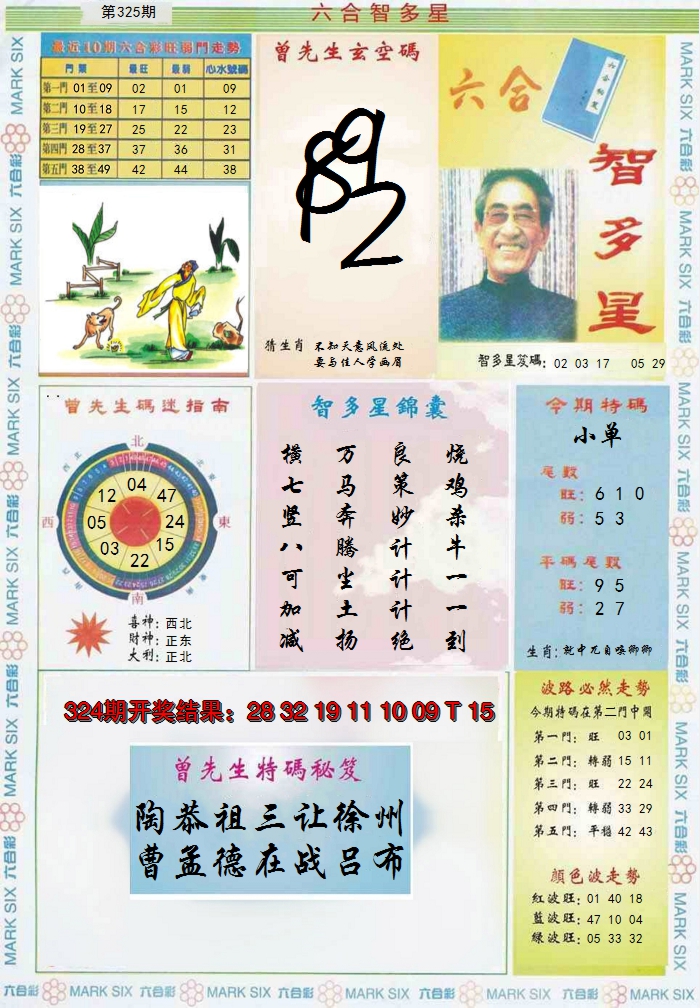 第325期
六合智多星
最近10期六合彩旺弱門走勢
門類 最旺 最弱 心水號碼
第一門 01至09 02 01 09
第二門 10至18 17 15 12
第三門 19至27 25 22 23
第四門 28至37 37 36 31
第五門 38至49 42 44 38
曾先生玄空碼
892
猜生肖 不知天意风流处
要与佳人学画眉
六合
六合秘笈
智多星
智多星笈碼: 02 03 17 05 29
曾先生碼迷指南
北
西北
东北
西
東
南
04
47
24
15
22
03
05
12
喜神: 西北
财神: 正东
大利: 正北
智多星錦囊
横 万 良 烧
七 马 策 鸡
竖 奔 妙 杀
八 腾 计 牛
可 尘 计 一
加 土 计 一
减 扬 绝 到
今期特碼
小单
尾數
旺: 6 1 0
弱: 5 3
平碼尾數
旺: 9 5
弱: 2 7
生肖: 就中尤自唤卿卿
324期开奖结果: 28 32 19 11 10 09 T 15
曾先生特碼秘笈
陶恭祖三让徐州
曹孟德在战吕布
波路必然走勢
今期特碼在第二門中開
第一門: 旺 03 01
第二門: 轉弱 15 11
第三門: 旺 22 24
第四門: 轉弱 33 29
第五門: 平穩 42 43
顏色波走勢
紅波旺: 01 40 18
藍波旺: 47 10 04
綠波旺: 05 33 32
六合彩 MARK SIX 六合彩 MARK SIX 六合彩 MARK SIX 六合彩 MARK SIX 六合彩